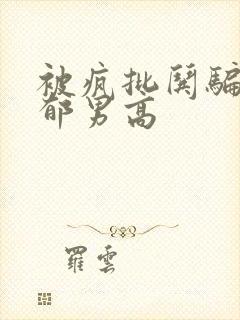 被疯批闋骗
郁男高
羅雲